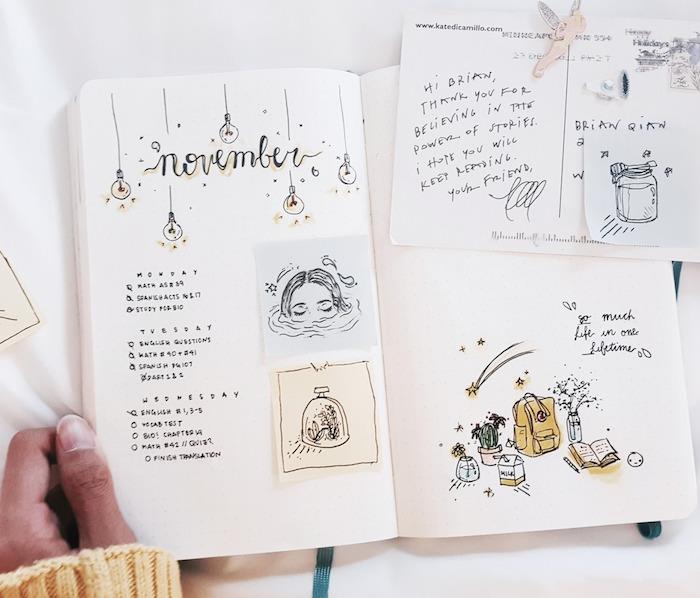 november
MONDAY
MATH AS # 39
SPANISH ACTS 16 & 17
STUDY FOR BIO
TUESDAY
ENGLISH QUESTIONS
MATH #40 + #41
SPANISH PG 107
PART 1 & 2
WEDNESDAY
ENGLISH #1, 3-5
VOCAB TEST
BIO! CHAPTER
MATH #42 // QUIZ?
FINISH TRANSLATION
www.katedicamillo.com
MINNEAP
Happy
Holidays
HI BRIAN,
THANK YOU FOR
BELIEVING IN THE
POWER OF STORIES.
I HOPE YOU WILL
KEEP READING.
YOUR FRIEND,
BRIAN QIAN
2
W
so much
life in one
lifetime
MILK